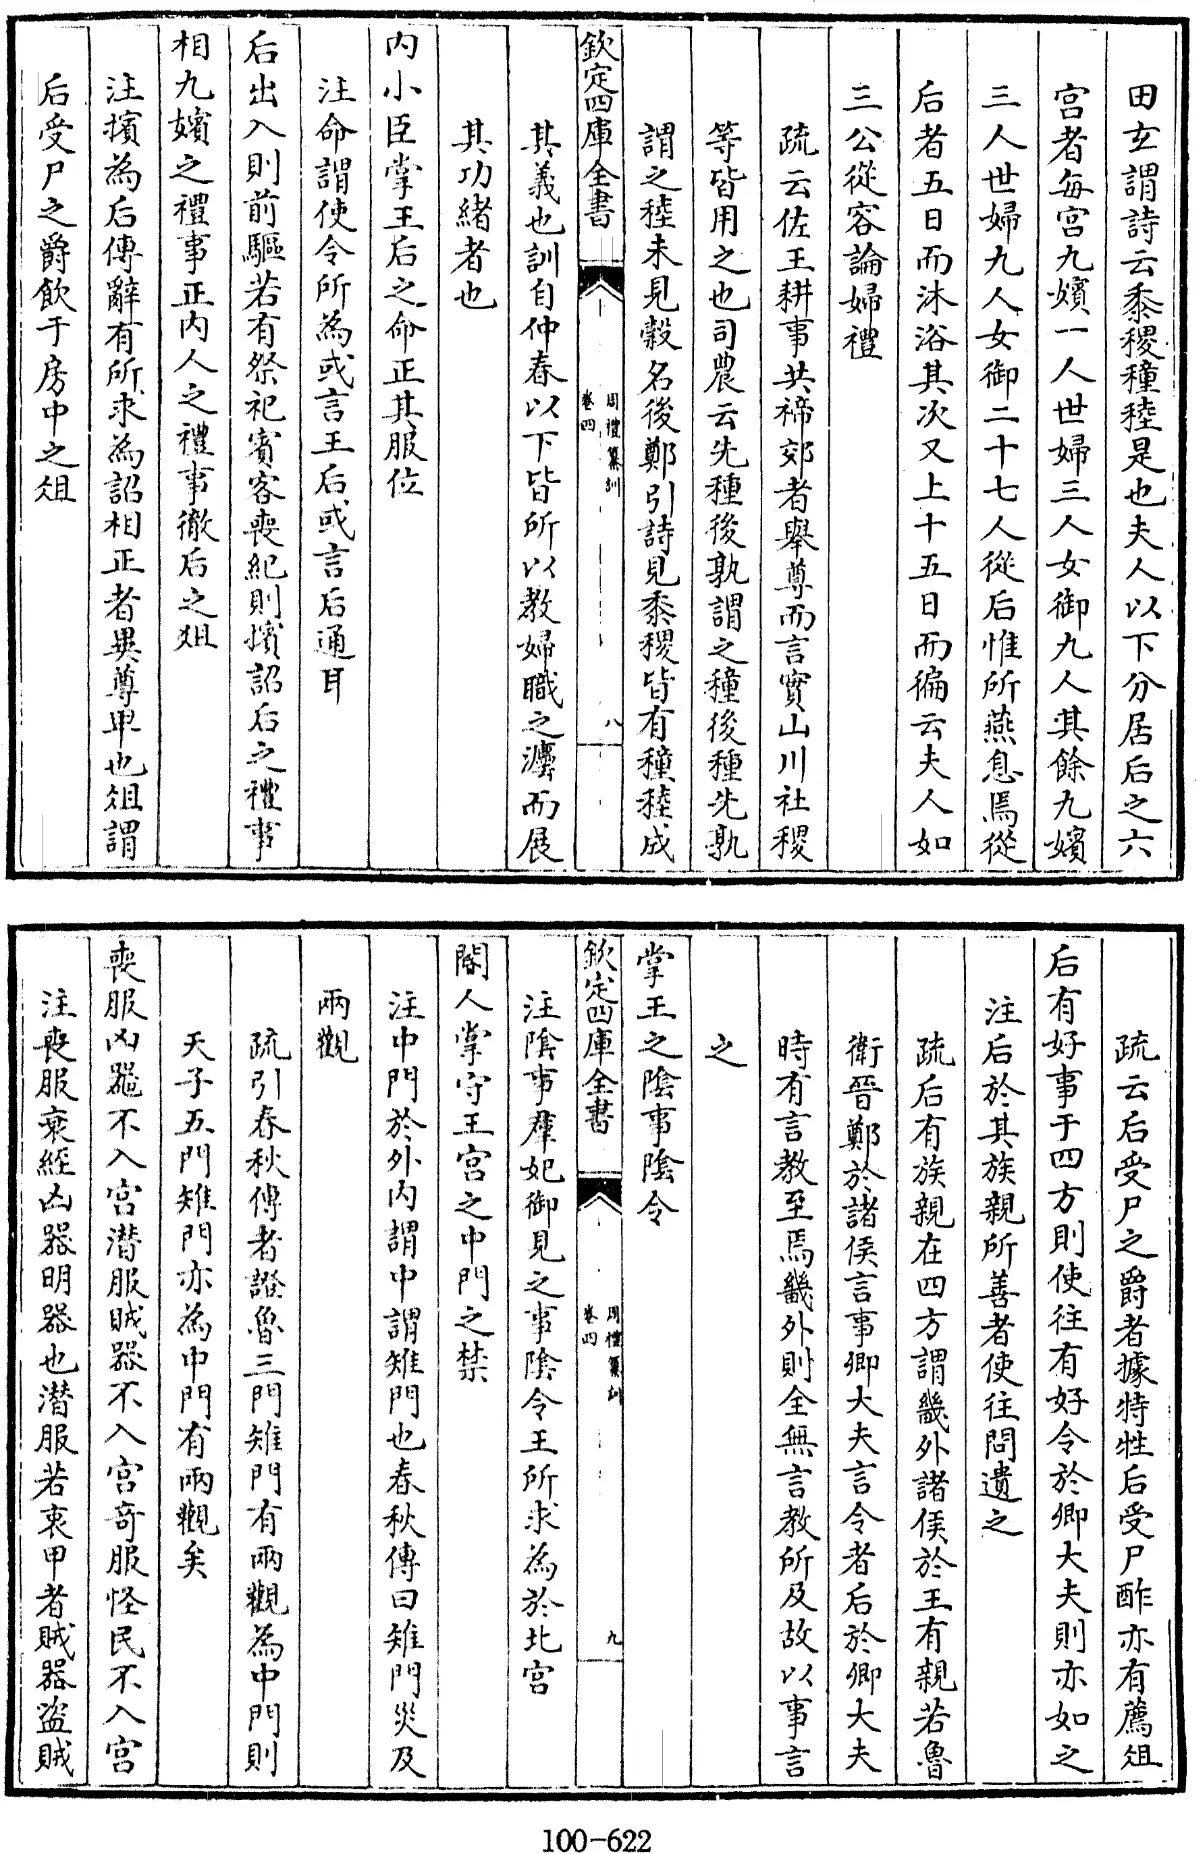 田玄謂詩云黍稷穜稑是也夫人以下分居后之六
宮者每宮九嬪一人世婦三人女御九人其餘九嬪
三人世婦九人女御二十七人從后惟所燕息焉從
后者五日而沐浴其次又上十五日而徧云夫人如
三公從容論婦禮
疏云佐王耕事共禘郊者舉尊而言實山川社稷
等皆用之也司農云先種後孰謂之穜後種先孰
謂之稑未見穀名後鄭引詩見黍稷皆有穜稑成
欽定四庫全書
周禮纂訓
卷四
八
其義也訓自仲春以下皆所以教婦職之灋而展
其功緒者也
內小臣掌王后之命正其服位
注命謂使令所為或言王后或言后通耳
后出入則前驅若有祭祀賓客喪紀則擯詔后之禮事
相九嬪之禮事正內人之禮事徹后之俎
注擯為后傳辭有所求為詔相正者異尊卑也俎謂
后受尸之爵飲于房中之俎
疏云后受尸之爵者據特牲后受尸酢亦有薦俎
后有好事于四方則使往有好令於卿大夫則亦如之
注后於其族親所善者使往問遺之
疏后有族親在四方謂畿外諸侯於王有親若魯
衛晉鄭於諸侯言事卿大夫言令者后於卿大夫
時有言教至焉畿外則全無言教所及故以事言
之
掌王之陰事陰令
欽定四庫全書
周禮纂訓
卷四
九
注陰事羣妃御見之事陰令王所求為於北宮
閽人掌守王宮之中門之禁
注中門於外內謂中謂雉門也春秋傳曰雉門災及
兩觀
疏引春秋傳者證魯三門雉門有兩觀為中門則
天子五門雉門亦為中門有兩觀矣
喪服凶器不入宮潛服賊器不入宮奇服怪民不入宮
注喪服衰絰凶器明器也潛服若衷甲者賊器盜賊
100-622